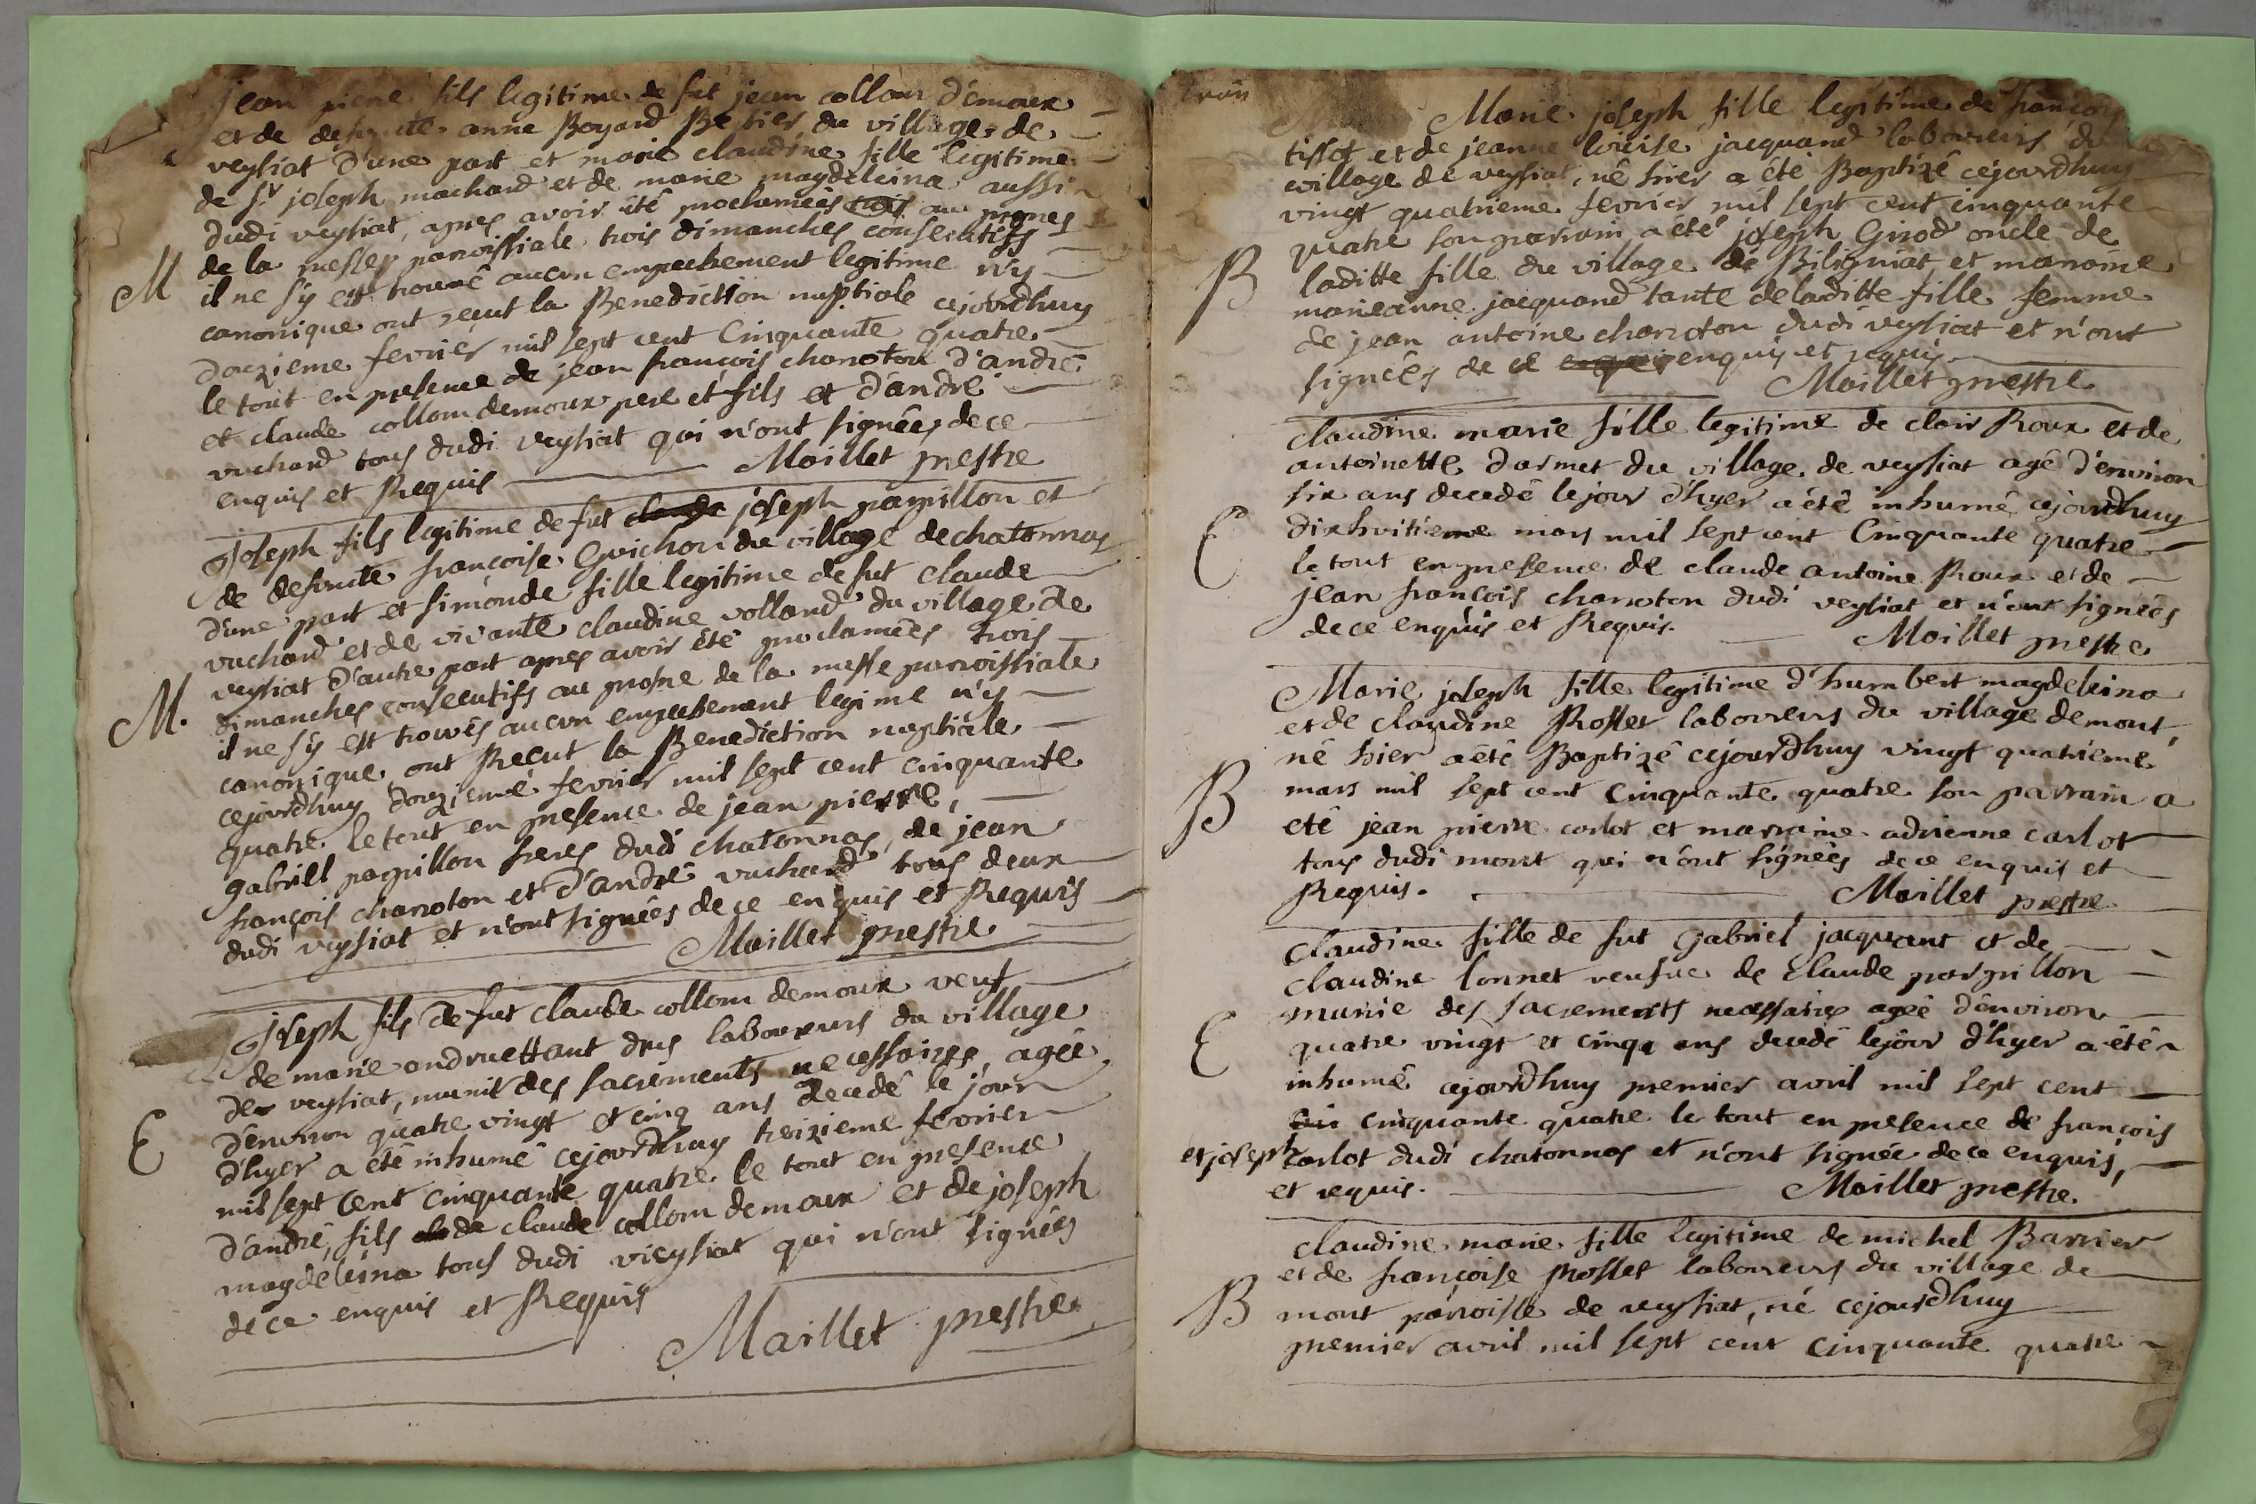 jean pierre fils legitime de fut jean collom d'emoux
et de defunte anne Boyard du village de
veysiat d'une part et marie claudine fille legitime
de sr joseph machard et de marie magdeleina aussi
dudi veysiat, apres avoir été proclamées au prones
de la messes paroissiale trois dimanches consecutifs
M
il ne s'y est trouvé aucun empechement legitime n'y
canonique ont reçut la Benediction nuptiale cejourdhuy
douzieme fevrier mil sept cent Cinquante quatre
le tout en presence de jean françois chanoton d'andre
et claude collom demoux pere et fils et d'andre
vuchard tous dudi veysiat qui n'ont signées de ce
enquis et Requis Maillet prestre
Joseph fils legitime de fut claude joseph papillon et
de defunte françoise Guichon du village de chatonnas
d'une part et simonde fille legitime de fut claude
vuchard et de vivante claudine volland du village de
veysiat d'autre part apres avoir été proclamées trois
M.
dimanches consecutifs au prosne de la messe paroissiale
il ne s'y est trouvés aucun empechement legime n'y
canonique ont Reçut la Benediction nuptiale
cejourdhuy douzieme fevrier mil sept cent cinquante
quatre le tout en presence de jean pierre,
gabriell papillon freres dudi chatonnas, de jean
françois chanoton et d'andré vuchard tous deux
dudi veysiat et n'ont signées de ce enquis et Requis
Maillet prestre
Joseph fils de fut claude collom demoux veuf
de marie andruettant des laboureurs du village
de veysiat, munit des sacrements necessaires, agée
d'environ quatre vingt et cinq ans decedé le jour
E
d'hyer a été inhumé cejourdhuy treizieme fevrier
mil sept cent cinquante quatre le tout en presence
d'andré, fils de claude collom demoux et de joseph
magdeleina tous dudi vieysiat qui n'ont signées
de ce enquis et Requis
Maillet prestre
Marie joseph fille legitime de françois
tissot et de jeanne louise jacquand laboureurs du
village de veysiat, né hier a été Baptizé cejourdhuy
vingt quatrieme fevrier mil sept cent cinquante
quatre son parrain a été joseph Girod oncle de
B
laditte fille du village de Biligniat et maraine
marieanne jacquand tante de laditte fille femme
de jean antoine chanoton dudi veysiat et n'ont
signées de ce enquis et requis
Maillet prestre
claudine marie fille legitime de clair Roux et de
antoinette darmet du village de veysiat agé d'environ
six ans decedé le jour d'hyer a été inhumé cejourdhuy
E
dixhuitieme mars mil sept cent Cinquante quatre
le tout en presence de claude antoine Roux et de
jean françois chanoton dudi veysiat et n'ont signées
de ce enquis et Requis. Maillet prestre
Marie joseph fille legitime d'humbert magdeleina
et de claudine Rosset laboureurs du village de mont,
né hier a été Baptizé cejourdhuy vingt quatrieme
B
mars mil sept cent cinquante quatre son parrain a
été jean pierre carlot et marraine adrienne carlot
tous dudi mont qui n'ont signées de ce enquis et
Requis. Maillet prestre
Claudine fille de fut Gabriel jacquant et de
claudine lonnet veufve de Claude parpillon
munie des sacrements necessaires ageé d'environ
E
quatre vingt et cinqt ans decedé lejour d'hyer a été
inhumé cejourdhuy premier avril mil sept cent
cinquante quatre le tout en presence de françois
et joseph carlot dudi chatonnas et n'ont signée de ce enquis,
et requis. Maillet prestre.
claudine marie fille legitime de michel Barrier
et de françoise Rosset laboureurs du village de
B
mont paroisse de veysiat, né cejourdhuy
premier avril mil sept cent cinquante quatre